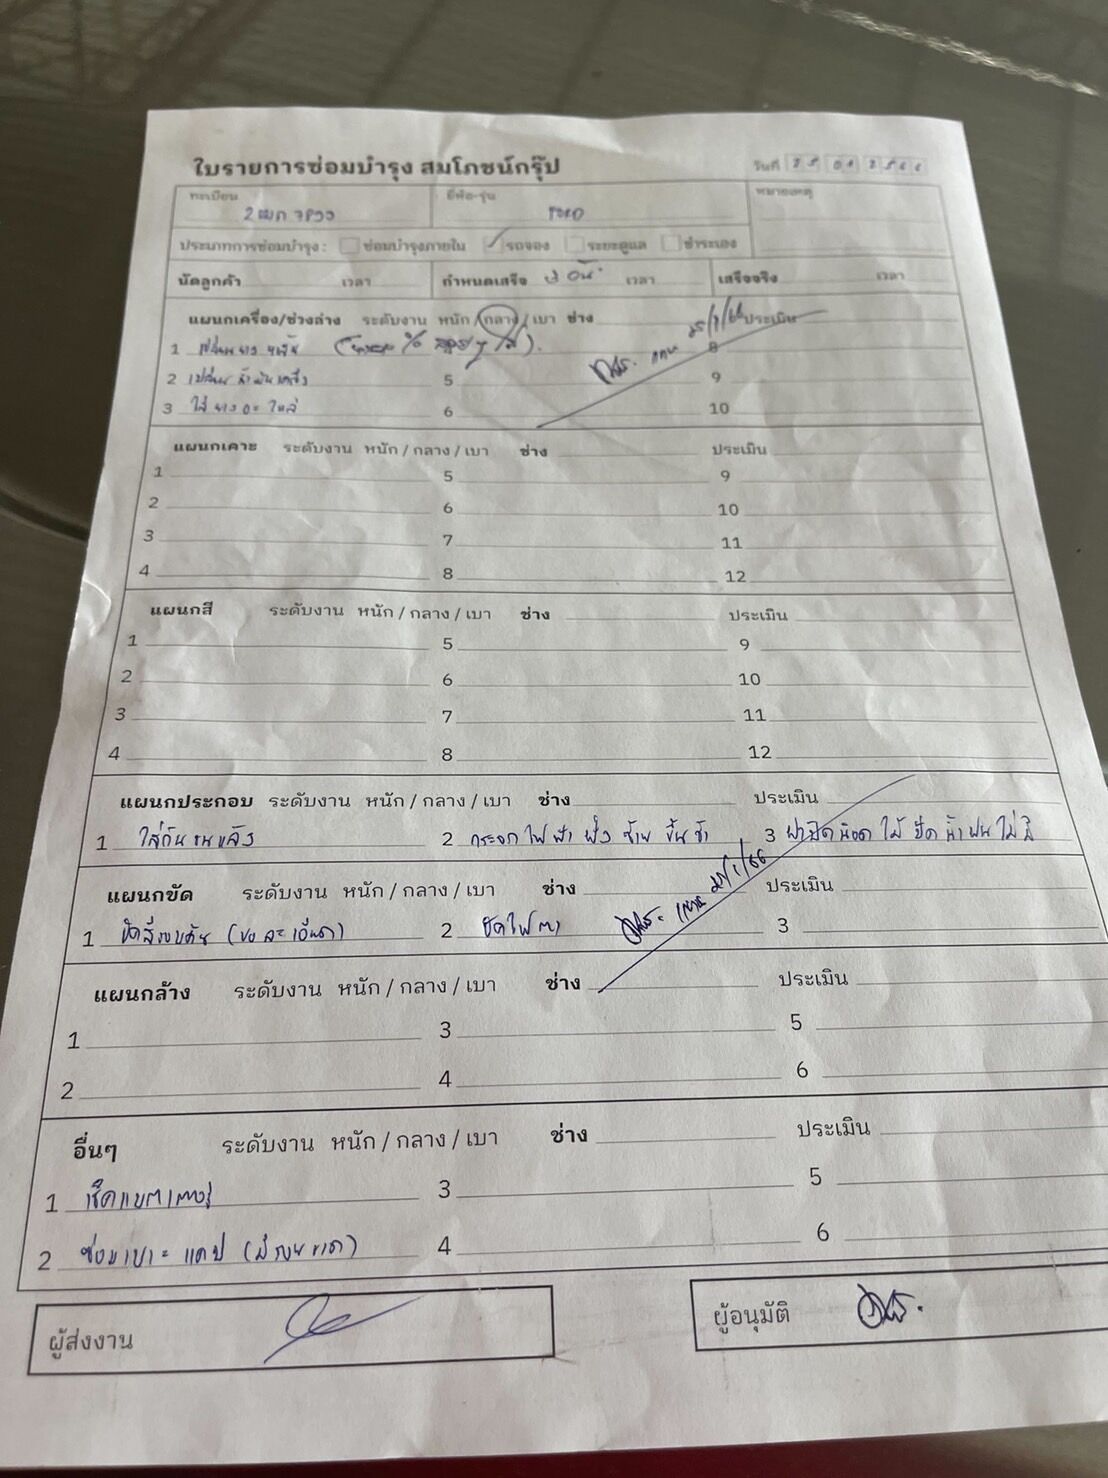 ใบรายการซ่อมบำรุง สมโภชน์กรุ๊ป วันที่ 25 01 2566
ทะเบียน ยี่ห้อ-รุ่น หมายเหตุ
ประเภทการซ่อมบำรุง : ซ่อมบำรุงภายใน รถจอง ระยะดูแล ชำระเอง
นัดลูกค้า เวลา กำหนดเสร็จ เวลา เสร็จจริง เวลา
แผนกเครื่อง/ช่วงล่าง ระดับงาน หนัก / กลาง / เบา ช่าง ประเมิน
1 เปลี่ยนยาง 8
2 เปลี่ยนน้ำมันเครื่อง 5 9
3 ใส่ยางอะไหล่ 6 10
แผนกเคาะ ระดับงาน หนัก / กลาง / เบา ช่าง ประเมิน
1 5 9
2 6 10
3 7 11
4 8 12
แผนกสี ระดับงาน หนัก / กลาง / เบา ช่าง ประเมิน
1 5 9
2 6 10
3 7 11
4 8 12
แผนกประกอบ ระดับงาน หนัก / กลาง / เบา ช่าง ประเมิน
1 ใส่กันชนหลัง 2 กระจกไฟฟ้า ฝั่งซ้าย ขึ้นช้า 3 ฝาปิดน็อตใบปัดน้ำฝนไม่มี
แผนกขัด ระดับงาน หนัก / กลาง / เบา ช่าง ประเมิน
1 ขัดสีรอบคัน (ขอละเอียด) 2 ขัดไฟตา 25/1/66 3
แผนกล้าง ระดับงาน หนัก / กลาง / เบา ช่าง ประเมิน
1 3 5
2 4 6
อื่นๆ ระดับงาน หนัก / กลาง / เบา ช่าง ประเมิน
1 เช็คแบตเตอรี่ 3 5
2 ซ่อมเบาะแคป (มีรอยขาด) 4 6
ผู้ส่งงาน ผู้อนุมัติ